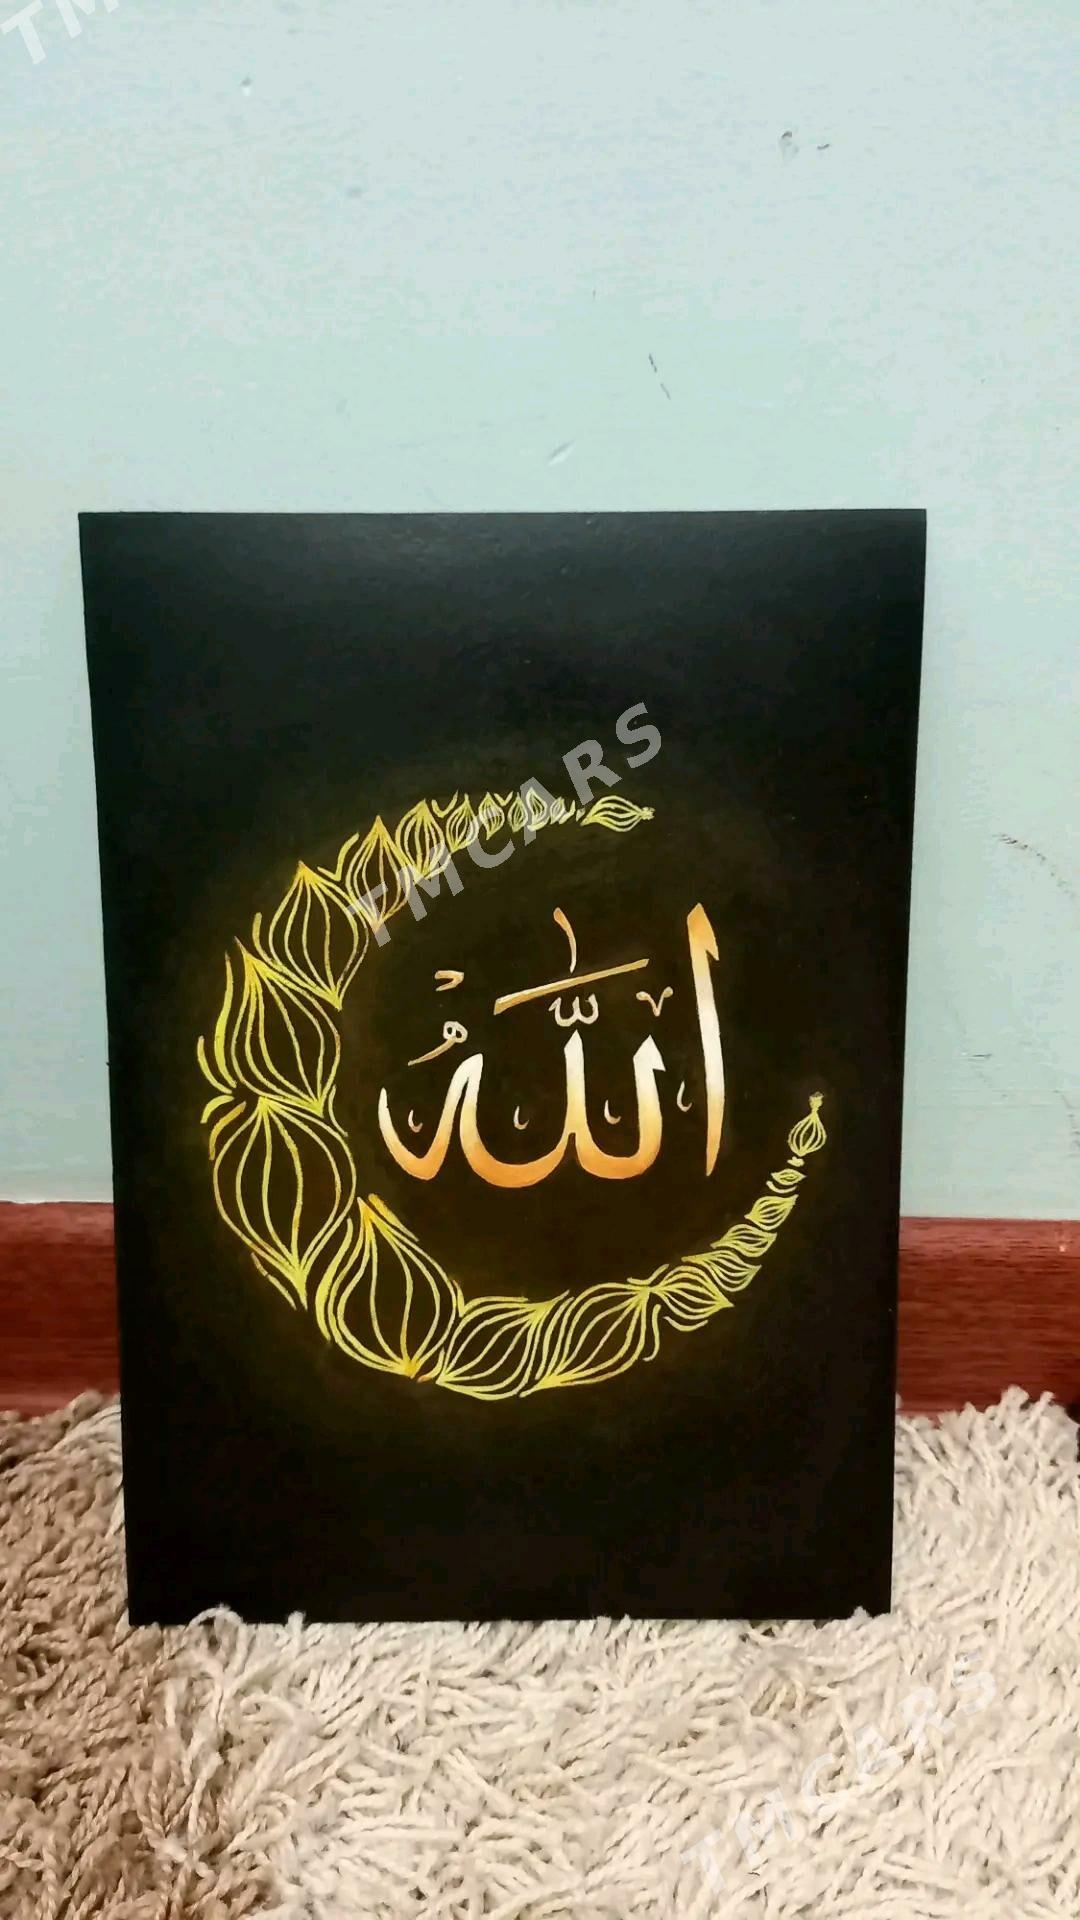 TMCARS
اللّٰهُ
TMCARS